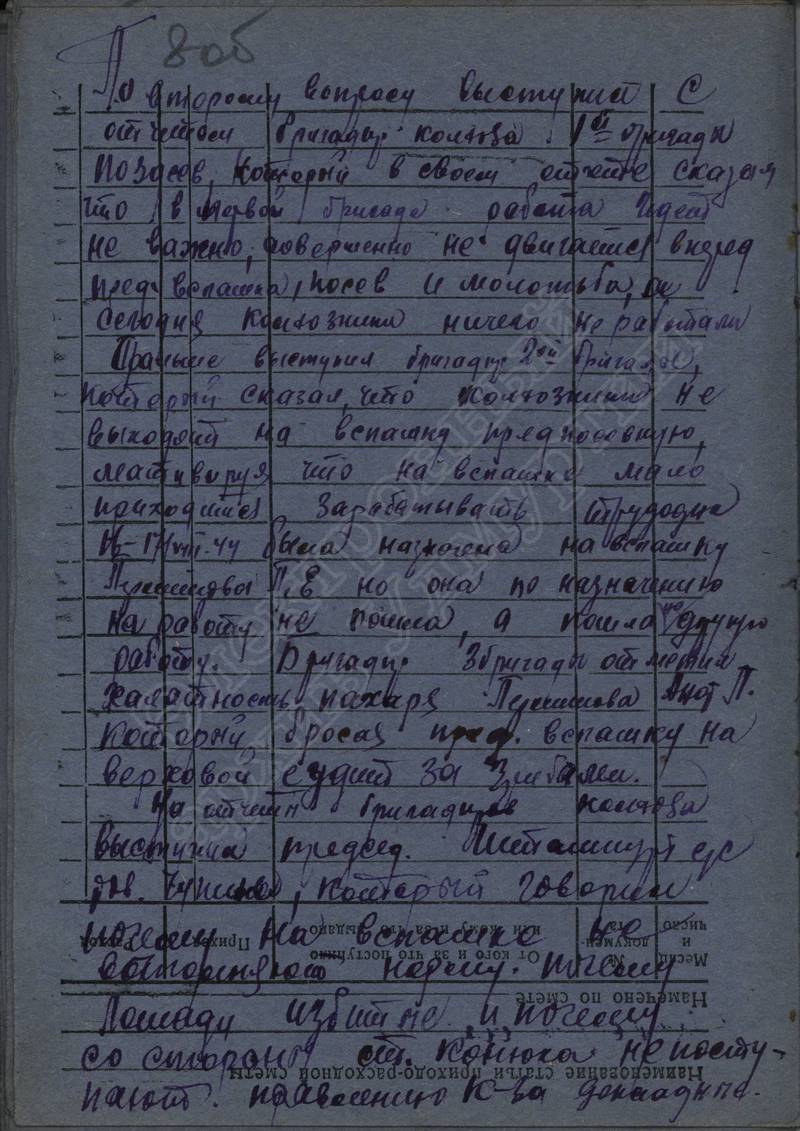 8об
По второму вопросу выступил с
отчетом бригадир колхоза 1ой бригады
Позасов, который в своем отчете сказал
что в первой бригаде работа идет
не важно, совершенно не двигается вперед
пред вспашка, посев и молотьба,
сегодня колхозники ничего не работали
выступил бригадир 2ой бригады,
который сказал, что колхозники не
выходят на вспашку предпосевную,
мативируя что на вспашке мало
приходится зарабатывать трудодня
17/VIII-44 была назначена на вспашку
П.Е но она по назначению
на работу не пошла, а пошла на другую
работу. Бригадир 3бригады отметил
халатность пахаря П.
который бросая пред. вспашку на
верховой ездит за грибами.
На отчет бригадиров колхоза
выступил председ. с/с
тов. который говорил
почему на вспашке не
норму. почему
Лошади избитые, и почему
со стороны ст. конюха не посту-
пают правлению к-за докладные.
Месяц и число
№ документа
От кого и за что поступило
или кому и за что выдано
Приход
Расход
Намечено по смете
Наименование статьи приходо-расходной сметы